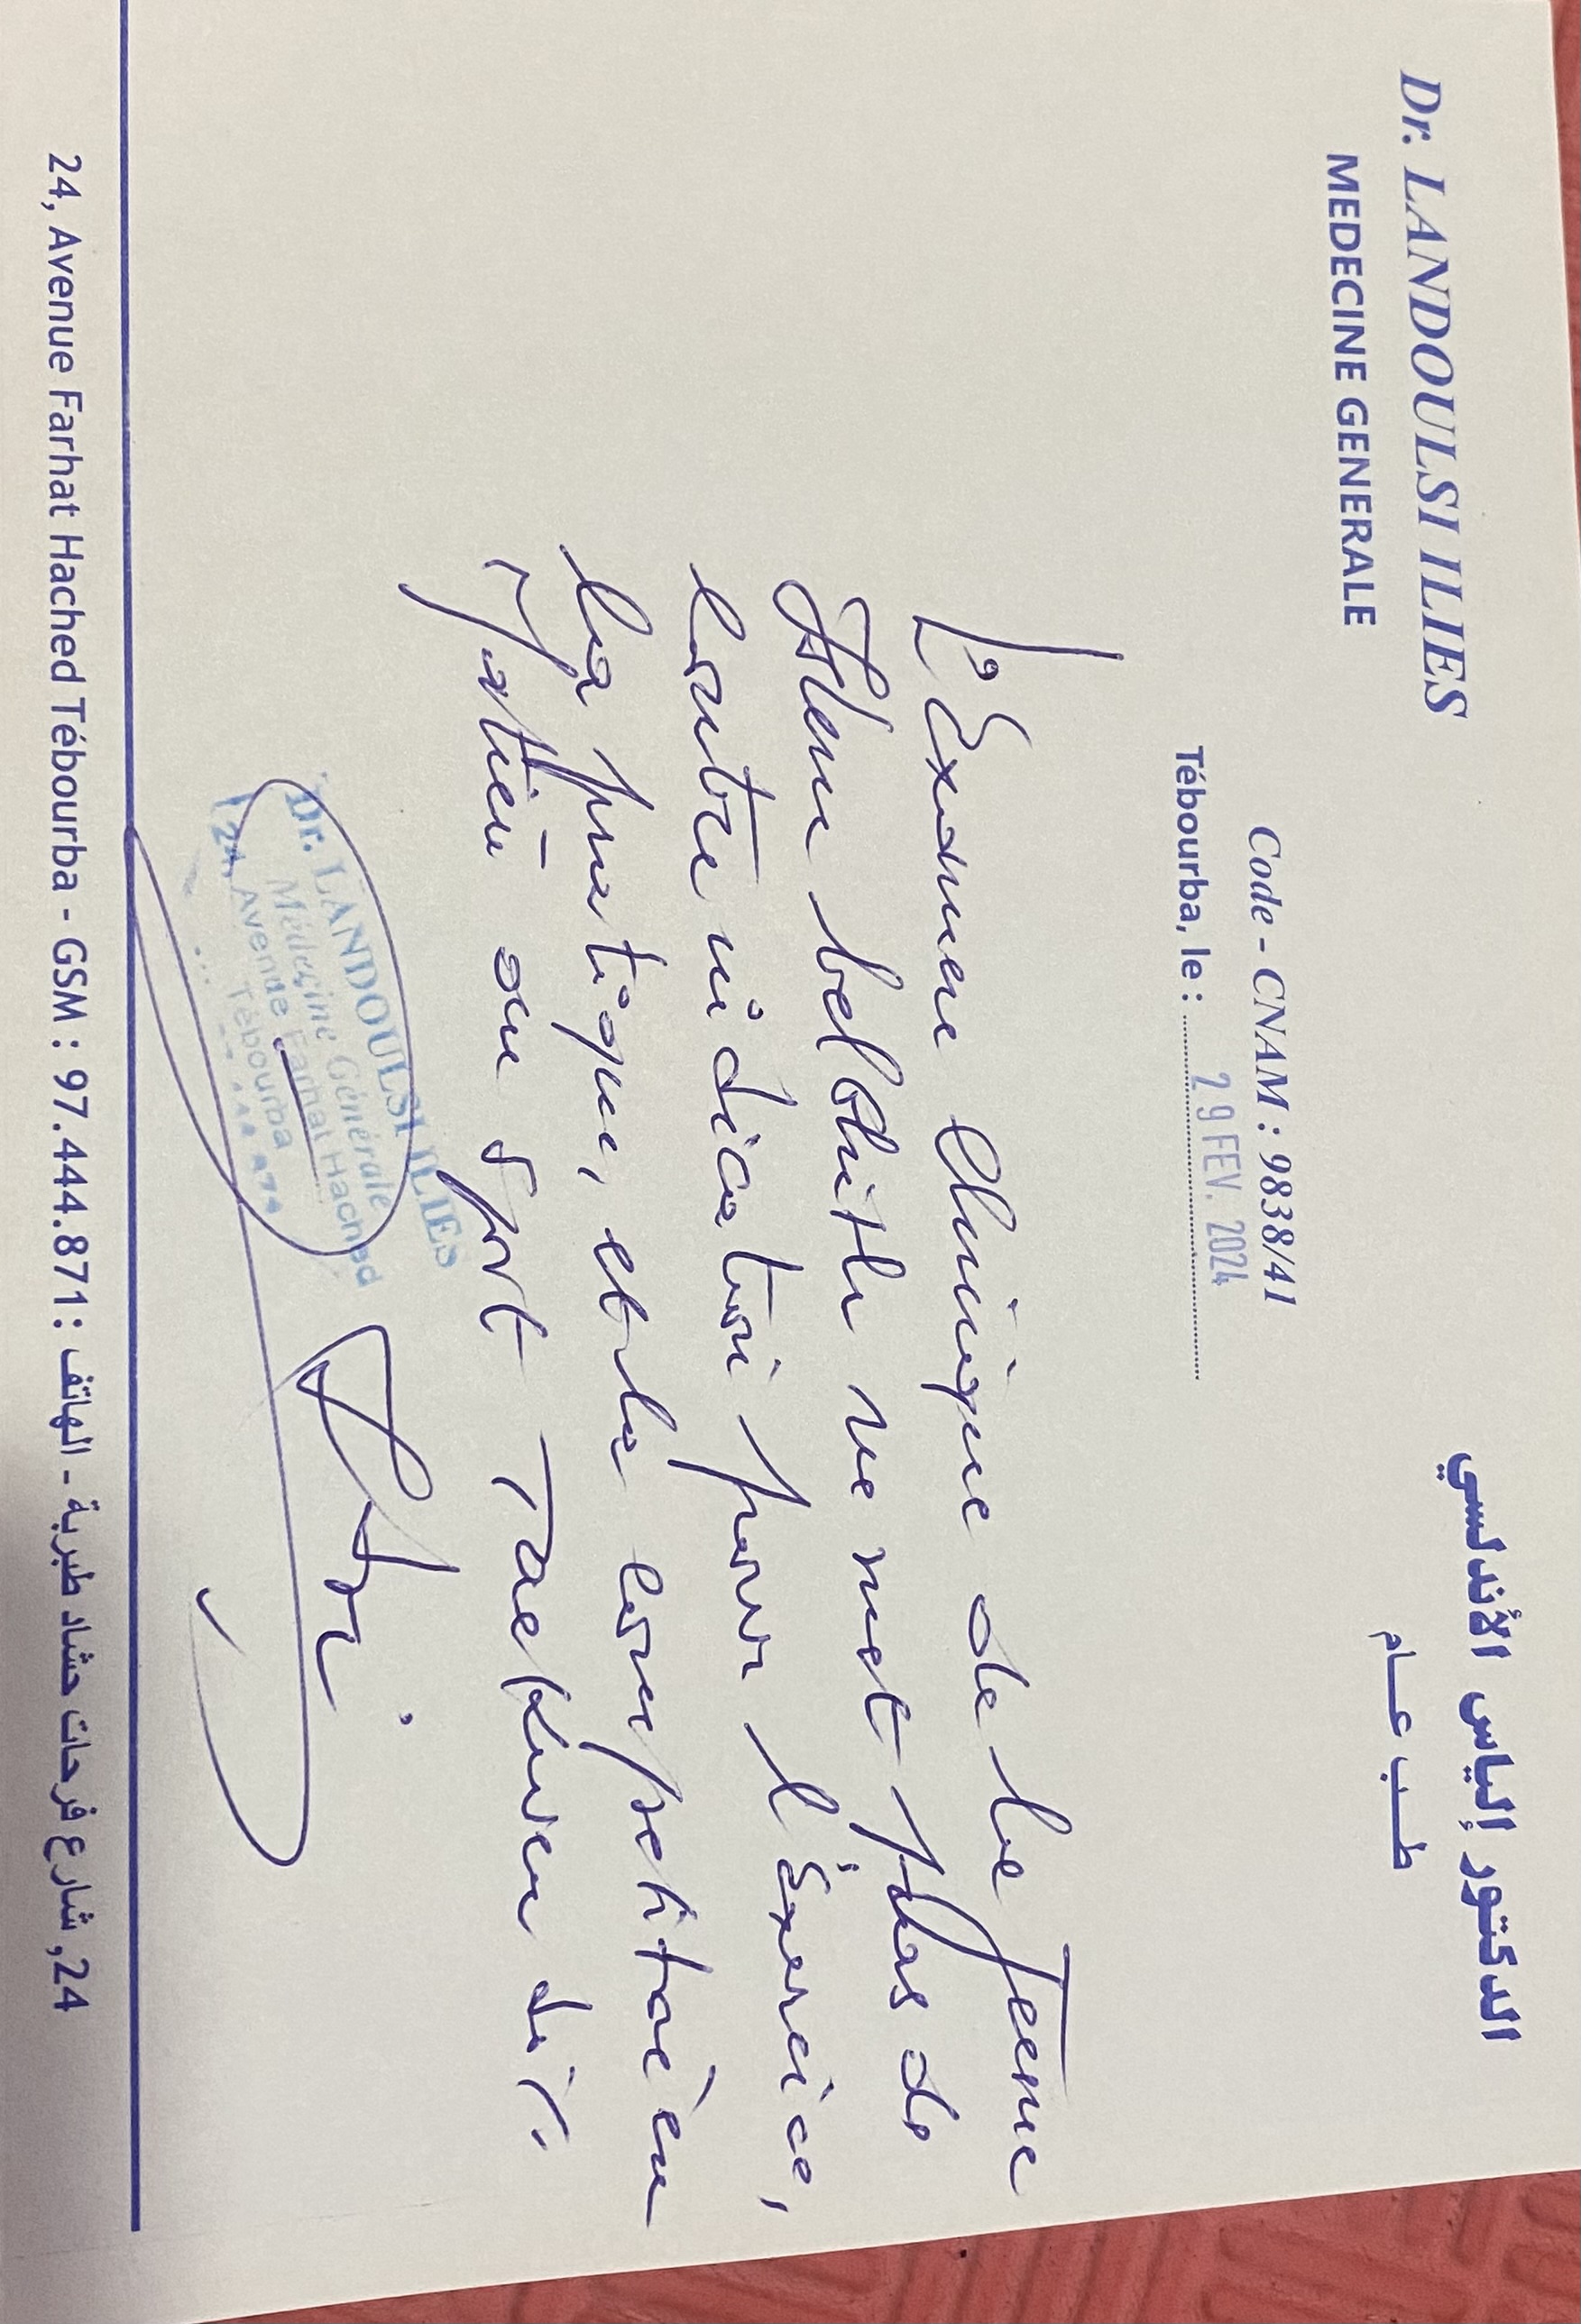 Dr. LANDOULSI ILIES
MEDECINE GENERALE
الدكتور إلياس الأندلسي
طب عام
Code - CNAM : 9838/41
Tébourba, le : 29 FEV. 2024
L'Examen Clinique de la Jeune
ne met pas de
contre indication pour l'exercice,
la pratique, et la compétition
au sport Taekwondo.
Dr. LANDOULSI ILIES
Médecine Générale
24, Avenue Farhat Hached
Tébourba
24, Avenue Farhat Hached Tébourba - GSM : 97.444.871 : الهاتف - 24, شارع فرحات حشاد طبربة